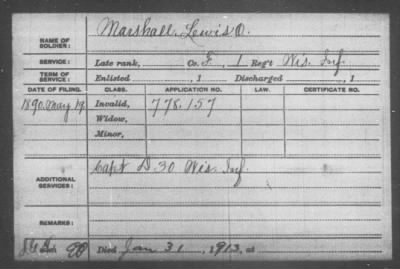 NAME OF SOLDIER: Marshall, Lewis O.
SERVICE: Late rank, Co. F, 1 Reg't Wis. Inf.
TERM OF SERVICE: Enlisted , 1 Discharged , 1
DATE OF FILING. CLASS. APPLICATION NO. LAW. CERTIFICATE NO.
1890. May 19 Invalid, 778.157
Widow,
Minor,
ADDITIONAL SERVICES: Capt D. 30 Wis. Inf.
REMARKS:
Died Jan 31, 1913, at